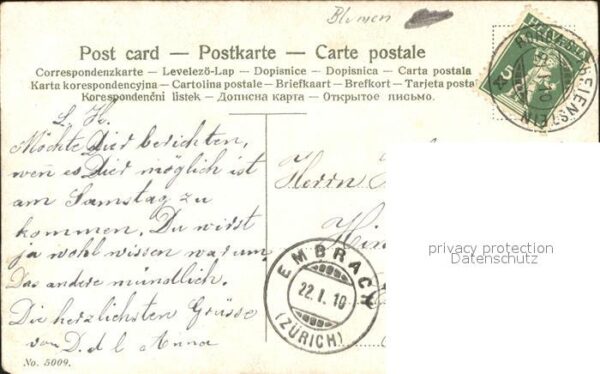 Blumen
Post card — Postkarte — Carte postale
Correspondenzkarte — Levelező-Lap — Dopisnice — Dopisnica — Carta postala
Karta korespondencyjna — Cartolina postale — Briefkaart — Brefkort — Tarjeta posta
Korespondenční lístek — Дописна карта — Открытое письмо.
HELVETIA
5
L. H.
Möchte Dier berichten,
wen es Dier möglich ist
am Samstag zu
kommen. Du wirst
ja wohl wissen warum,
Das andere mündlich.
Die herzlichsten Grüsse
von D. d l Anna
No. 5009.
Herrn
privacy protection
Datenschutz
EMBRACH
22.I.10
(ZÜRICH)